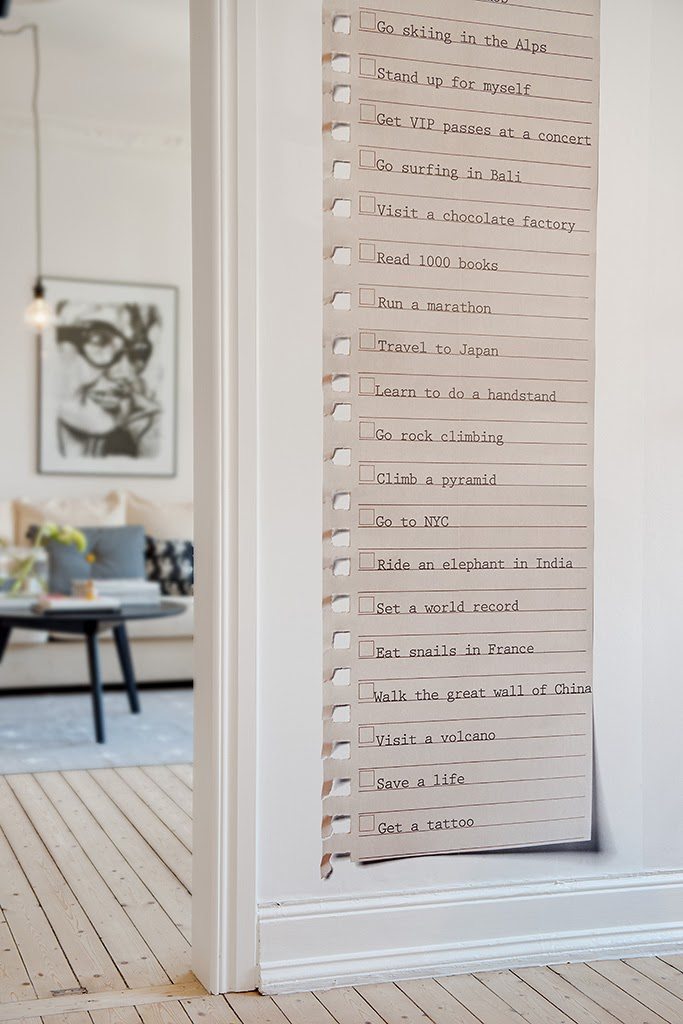 Go skiing in the Alps
Stand up for myself
Get VIP passes at a concert
Go surfing in Bali
Visit a chocolate factory
Read 1000 books
Run a marathon
Travel to Japan
Learn to do a handstand
Go rock climbing
Climb a pyramid
Go to NYC
Ride an elephant in India
Set a world record
Eat snails in France
Walk the great wall of China
Visit a volcano
Save a life
Get a tattoo